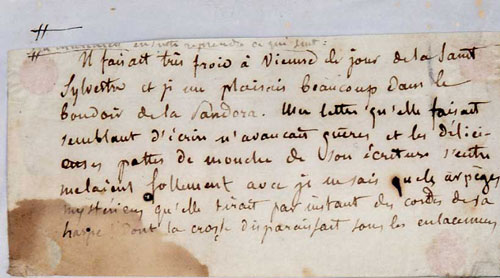 en note reprendre ce qui suit :
Il faisait très froid à Vienne le jour de la Saint
Sylvestre et je me plaisais beaucoup dans le
boudoir de la Pandora. Une lettre qu'elle faisait
semblant d'écrire n'avançait guères et les délici-
euses pattes de mouche de son écriture s'entre
melaient follement avec je ne sais quels arpèges
mystérieux qu'elle tirait par instant des cordes de sa
harpe dont la crosse disparaissait sous les enlacemens